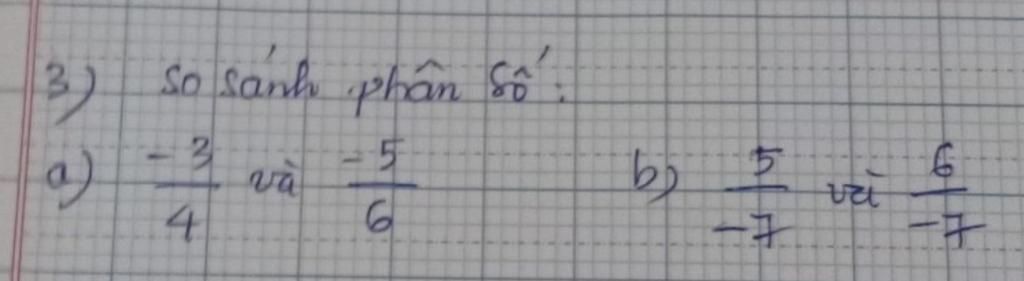 3) So sánh phân số:
a) -3/4 và -5/6 b) 5/-7 và 6/-7